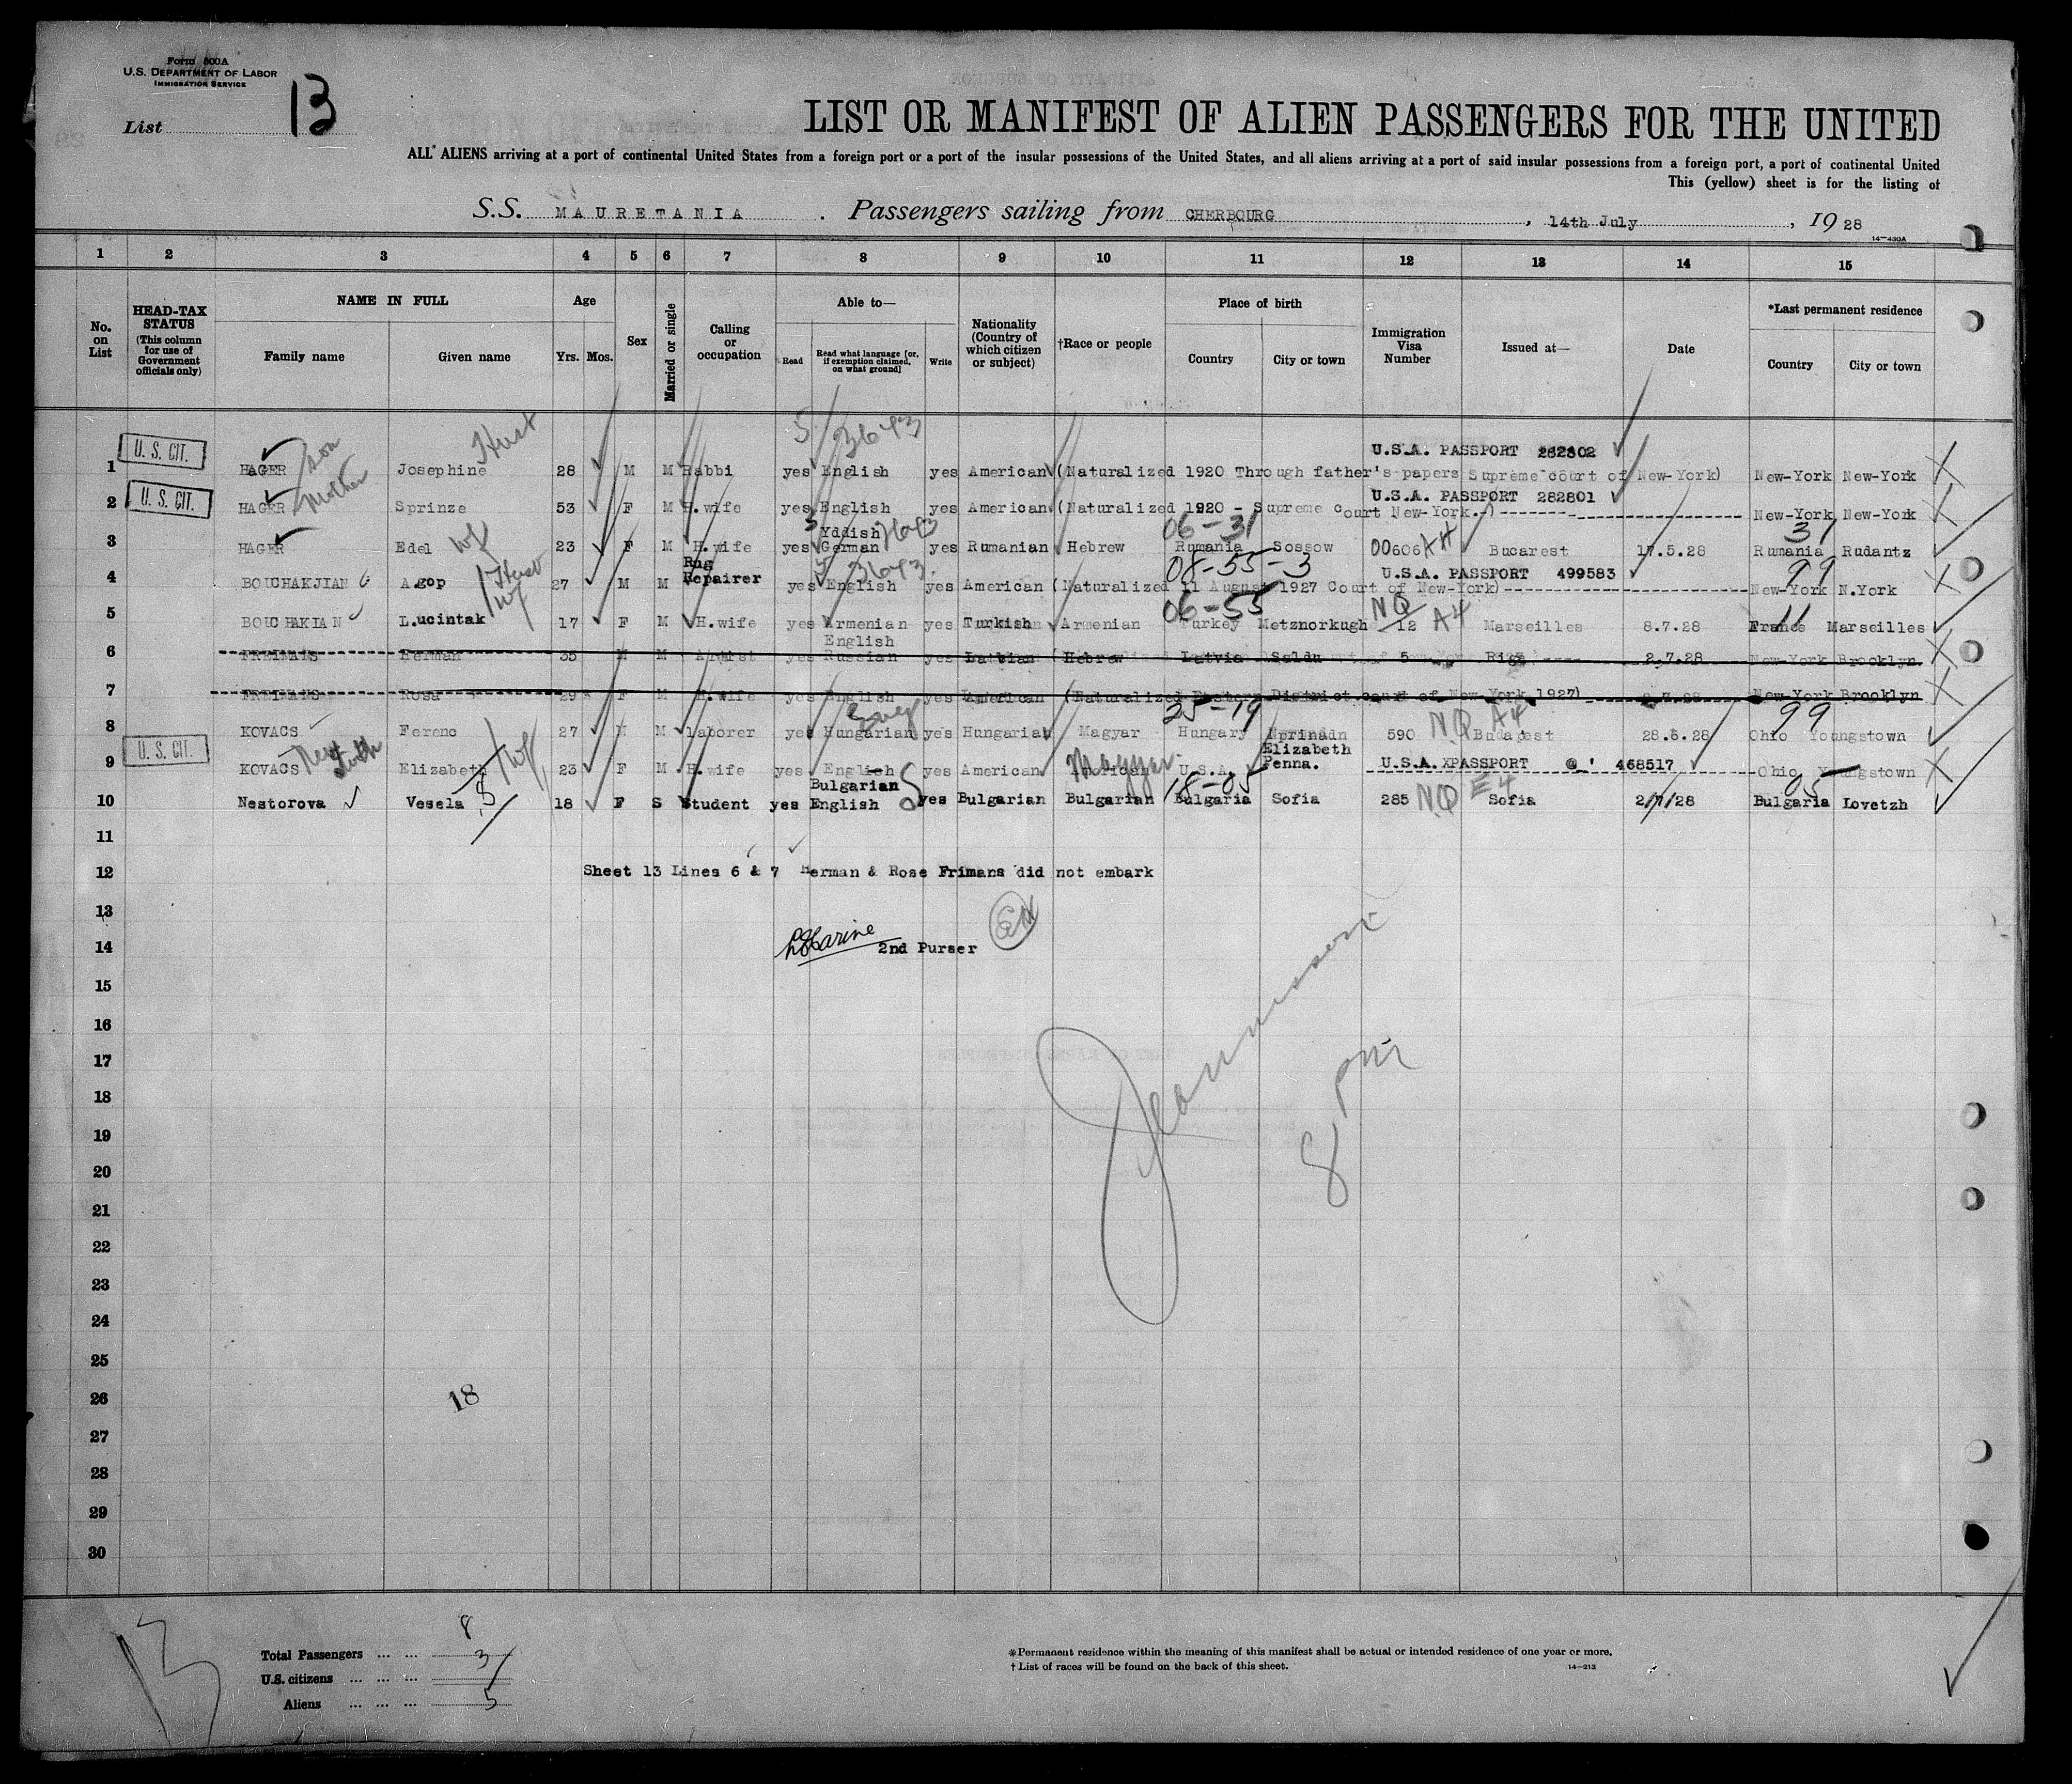 Form 500A
U.S. DEPARTMENT OF LABOR
IMMIGRATION SERVICE
List 13
LIST OR MANIFEST OF ALIEN PASSENGERS FOR THE UNITED
ALL ALIENS arriving at a port of continental United States from a foreign port or a port of the insular possessions of the United States, and all aliens arriving at a port of said insular possessions from a foreign port, a port of continental United
This (yellow) sheet is for the listing of
S.S. MAURETANIA . Passengers sailing from CHERBOURG , 14th July , 19 28
14-430A
1 2 3 4 5 6 7 8 9 10 11 12 13 14 15
No. on List
HEAD-TAX STATUS (This column for use of Government officials only)
NAME IN FULL
Family name Given name
Age
Yrs. Mos.
Sex
Married or single
Calling or occupation
Able to—
Read Read what language [or, if exemption claimed, on what ground] Write
Nationality (Country of which citizen or subject)
†Race or people
Place of birth
Country City or town
Immigration Visa Number
Issued at—
Date
*Last permanent residence
Country City or town
Hust
5/3643
U. S. CIT. U.S.A. PASSPORT 282302
1 HAGER son Josephine 28 M M Rabbi yes English yes American (Naturalized 1920 Through father's papers Supreme court of New-York) New-York New-York
U. S. CIT. Mother U.S.A. PASSPORT 282801
2 HAGER Sprinze 53 F M H.wife yes English yes American (Naturalized 1920 - Supreme court New-York.) New-York New-York
Yddish 06-31 31
3 HAGER Edel wf 23 F M H.wife yes German yes Rumanian Hebrew Rumania Sossow 00606 Bucarest 17.5.28 Rumania Rudantz
Rug 3643 08-55-3 U.S.A. PASSPORT 499583 99
4 BOUCHAKJIAN Agop Hust 27 M M Repairer yes English yes American (Naturalized 11 August 1927 Court of New-York) New-York N.York
wf 06-55 NQ A4 11
5 BOUCHAKIAN Lucintak 17 F M H.wife yes Armenian yes Turkish Armenian Turkey Metznorkugh 12 Marseilles 8.7.28 France Marseilles
English
6 FREIMANS Herman 35 M M Artist yes Russian yes Latvian (Hebrew Latvia Saldu 5 Riga 2.7.28 New-York Brooklyn
7 FREIMANS Rosa 29 F M H.wife yes English yes American (Naturalized Eastern District court of New-York 1927) New-York Brooklyn
25-19 NQ A4 99
8 KOVACS Ferenc 27 M M laborer yes Hungarian yes Hungarian Magyar Hungary 590 Budapest 28.6.28 Ohio Youngstown
U. S. CIT. wf Magyar Elizabeth
9 KOVACS Elizabeth 23 F M H.wife yes English yes American American U.S.A. Penna. U.S.A. XPASSPORT 468517 Ohio Youngstown
Bulgarian 18-05 05
10 Nestorova Vesela S 18 F S Student yes English yes Bulgarian Bulgarian Bulgaria Sofia 285 NQ E4 Sofia 2/7/28 Bulgaria Lovetzh
11
12 Sheet 13 Lines 6 & 7 Herman & Rose Frimans did not embark
13
14 2nd Purser
15
16
17
18
8 pm
19
20
21
22
23
24
25
26 18
27
28
29
30
8
Total Passengers ... ... 3
U.S. citizens ... ... ...
Aliens ... ... ... 5
13
*Permanent residence within the meaning of this manifest shall be actual or intended residence of one year or more.
†List of races will be found on the back of this sheet.
14-213